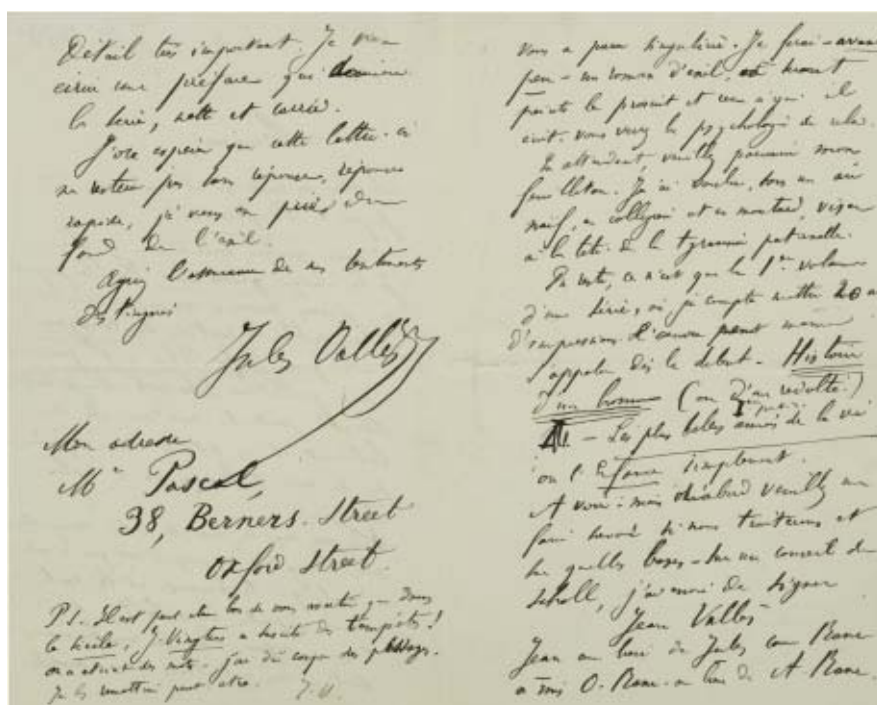 Détail très important. Je veux
écrire une préface qui domine
la série, nette et carrée.
J'ose espérer que cette lettre-ci
ne restera pas sans réponse, réponse
rapide, je vous en prie du
fond de l'exil.
Agréez l'assurance de mes sentiments
distingués
Jules Vallès
Mon adresse
Mr Pascal,
38, Berners-Street
Oxford Street.
P.S. Il est peut être bon de vous
le Siècle, J. Vingtras a suscité des tempêtes!
on a des mots - j'ai dû couper des passages.
Je les remettrai peut être. J.V.
vous a paru singulière. Je ferai - avant
peu - un roman d'exil
le proscrit et ceux à qui il
écrit. vous verrez la psychologie de cela.
En attendant, veuillez parcourir mon
feuilleton. J'ai voulu, sous un air
naïf, en collégien et en moutard, viser
à la tête de la tyrannie paternelle.
Du reste, ce n'est que le 1er volume
d'une série, où je compte mettre 20 a
d'impressions
appeler dès le début - Histoire
d'un homme (ou d'un révolté.)
- Les plus belles années de la vie
ou l'Enfance simplement.
A voir: mais d'abord veuillez me
faire savoir si nous traiterons et
sur quelles bases - sur un conseil de
Scholl, j'ai envie de signer
Jean Vallès
Jean au lieu de Jules comme Ranc
a mis O. Ranc au lieu de A Ranc.